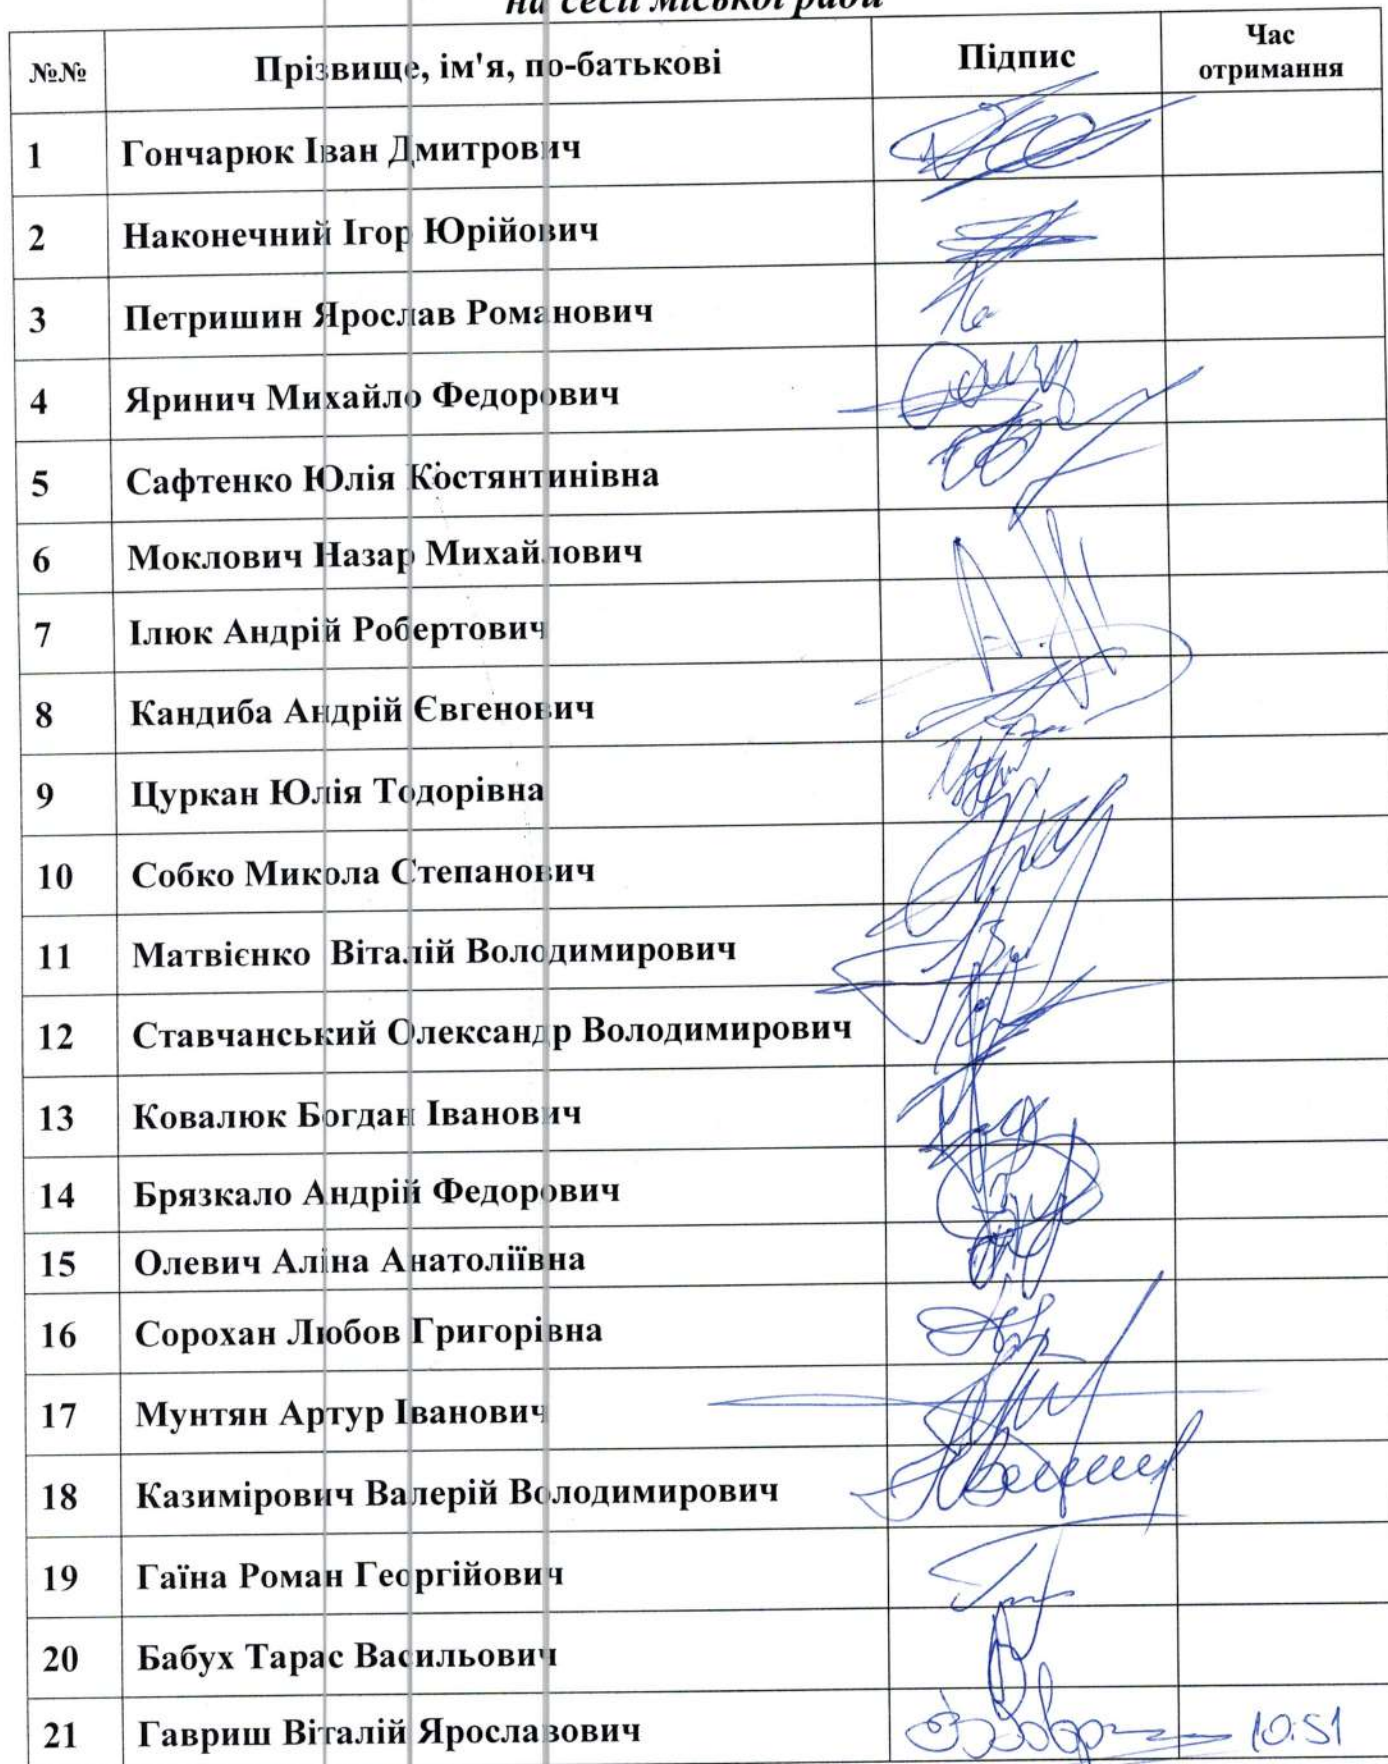 на сесії міської ради
№№ Прізвище, ім'я, по-батькові Підпис Час отримання
1 Гончарюк Іван Дмитрович
2 Наконечний Ігор Юрійович
3 Петришин Ярослав Романович
4 Яринич Михайло Федорович
5 Сафтенко Юлія Костянтинівна
6 Моклович Назар Михайлович
7 Ілюк Андрій Робертович
8 Кандиба Андрій Євгенович
9 Цуркан Юлія Тодорівна
10 Собко Микола Степанович
11 Матвієнко Віталій Володимирович
12 Ставчанський Олександр Володимирович
13 Ковалюк Богдан Іванович
14 Брязкало Андрій Федорович
15 Олевич Аліна Анатоліївна
16 Сорохан Любов Григорівна
17 Мунтян Артур Іванович
18 Казимірович Валерій Володимирович
19 Гаїна Роман Георгійович
20 Бабух Тарас Васильович
21 Гавриш Віталій Ярославович 10:51